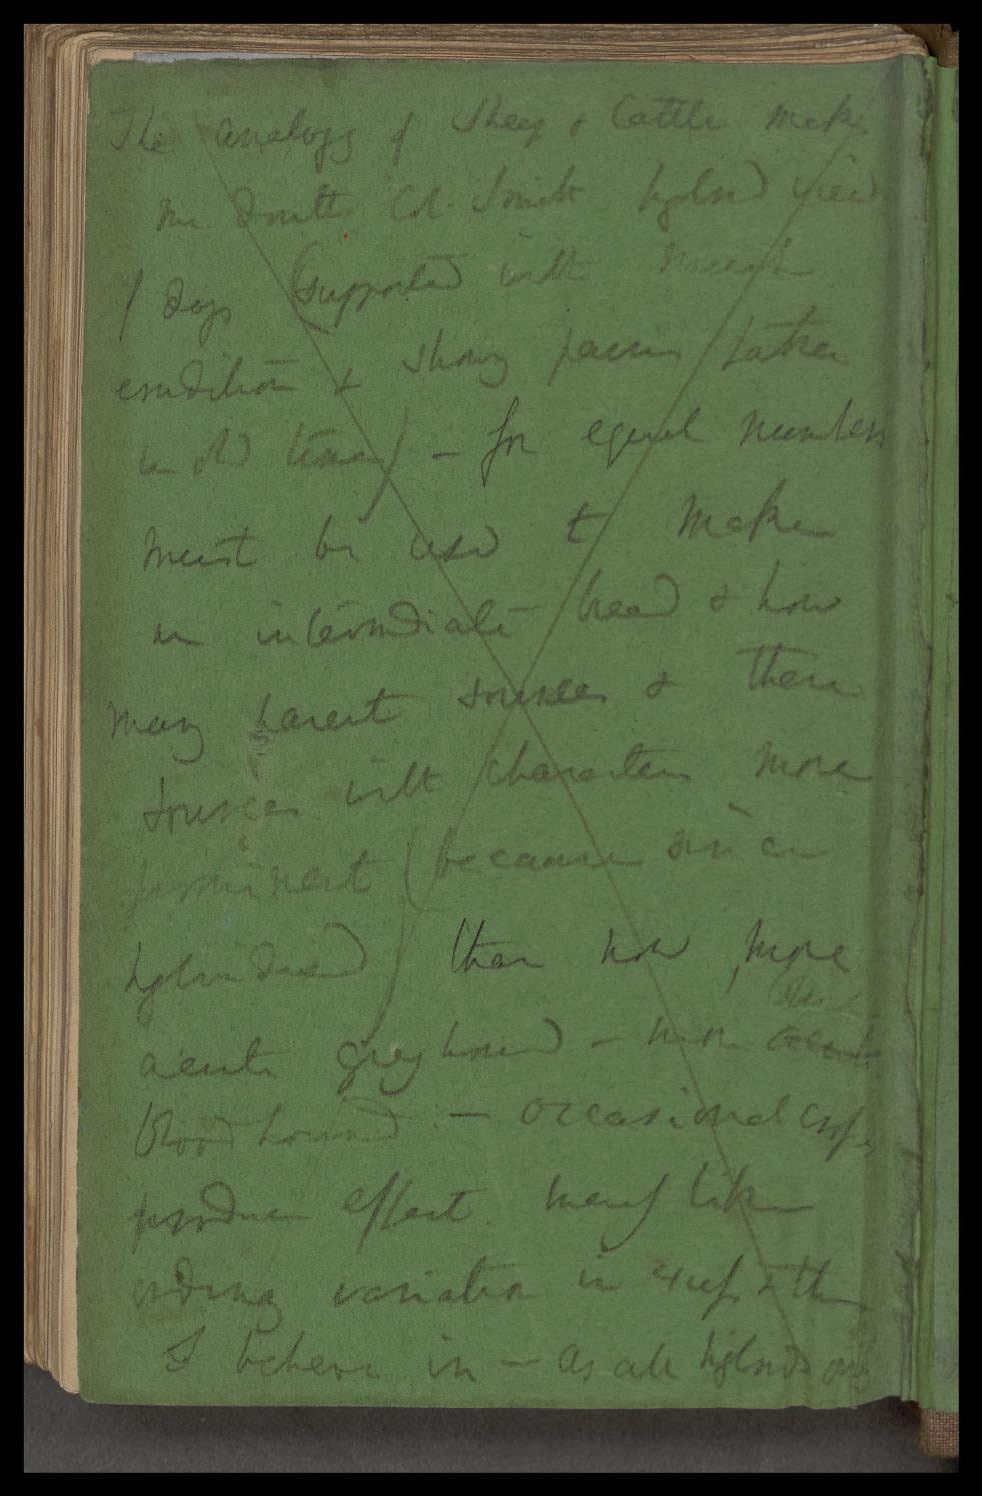 The analogy of Sheep & Cattle makes
me doubt Col. Smith hybrid view
of dogs (supported with much
erudition & strong passing rather
in old time) — for equal numbers
must be used to make
an intermediate breed & how
many parent sources & these
sources with characters more
prominent (because since
hybridised) than now, more
acute greyhound — more
bloodhound. — occasional cross
produce effect. merely like
ordinary variation in & this
I believe in — as all hybrids only